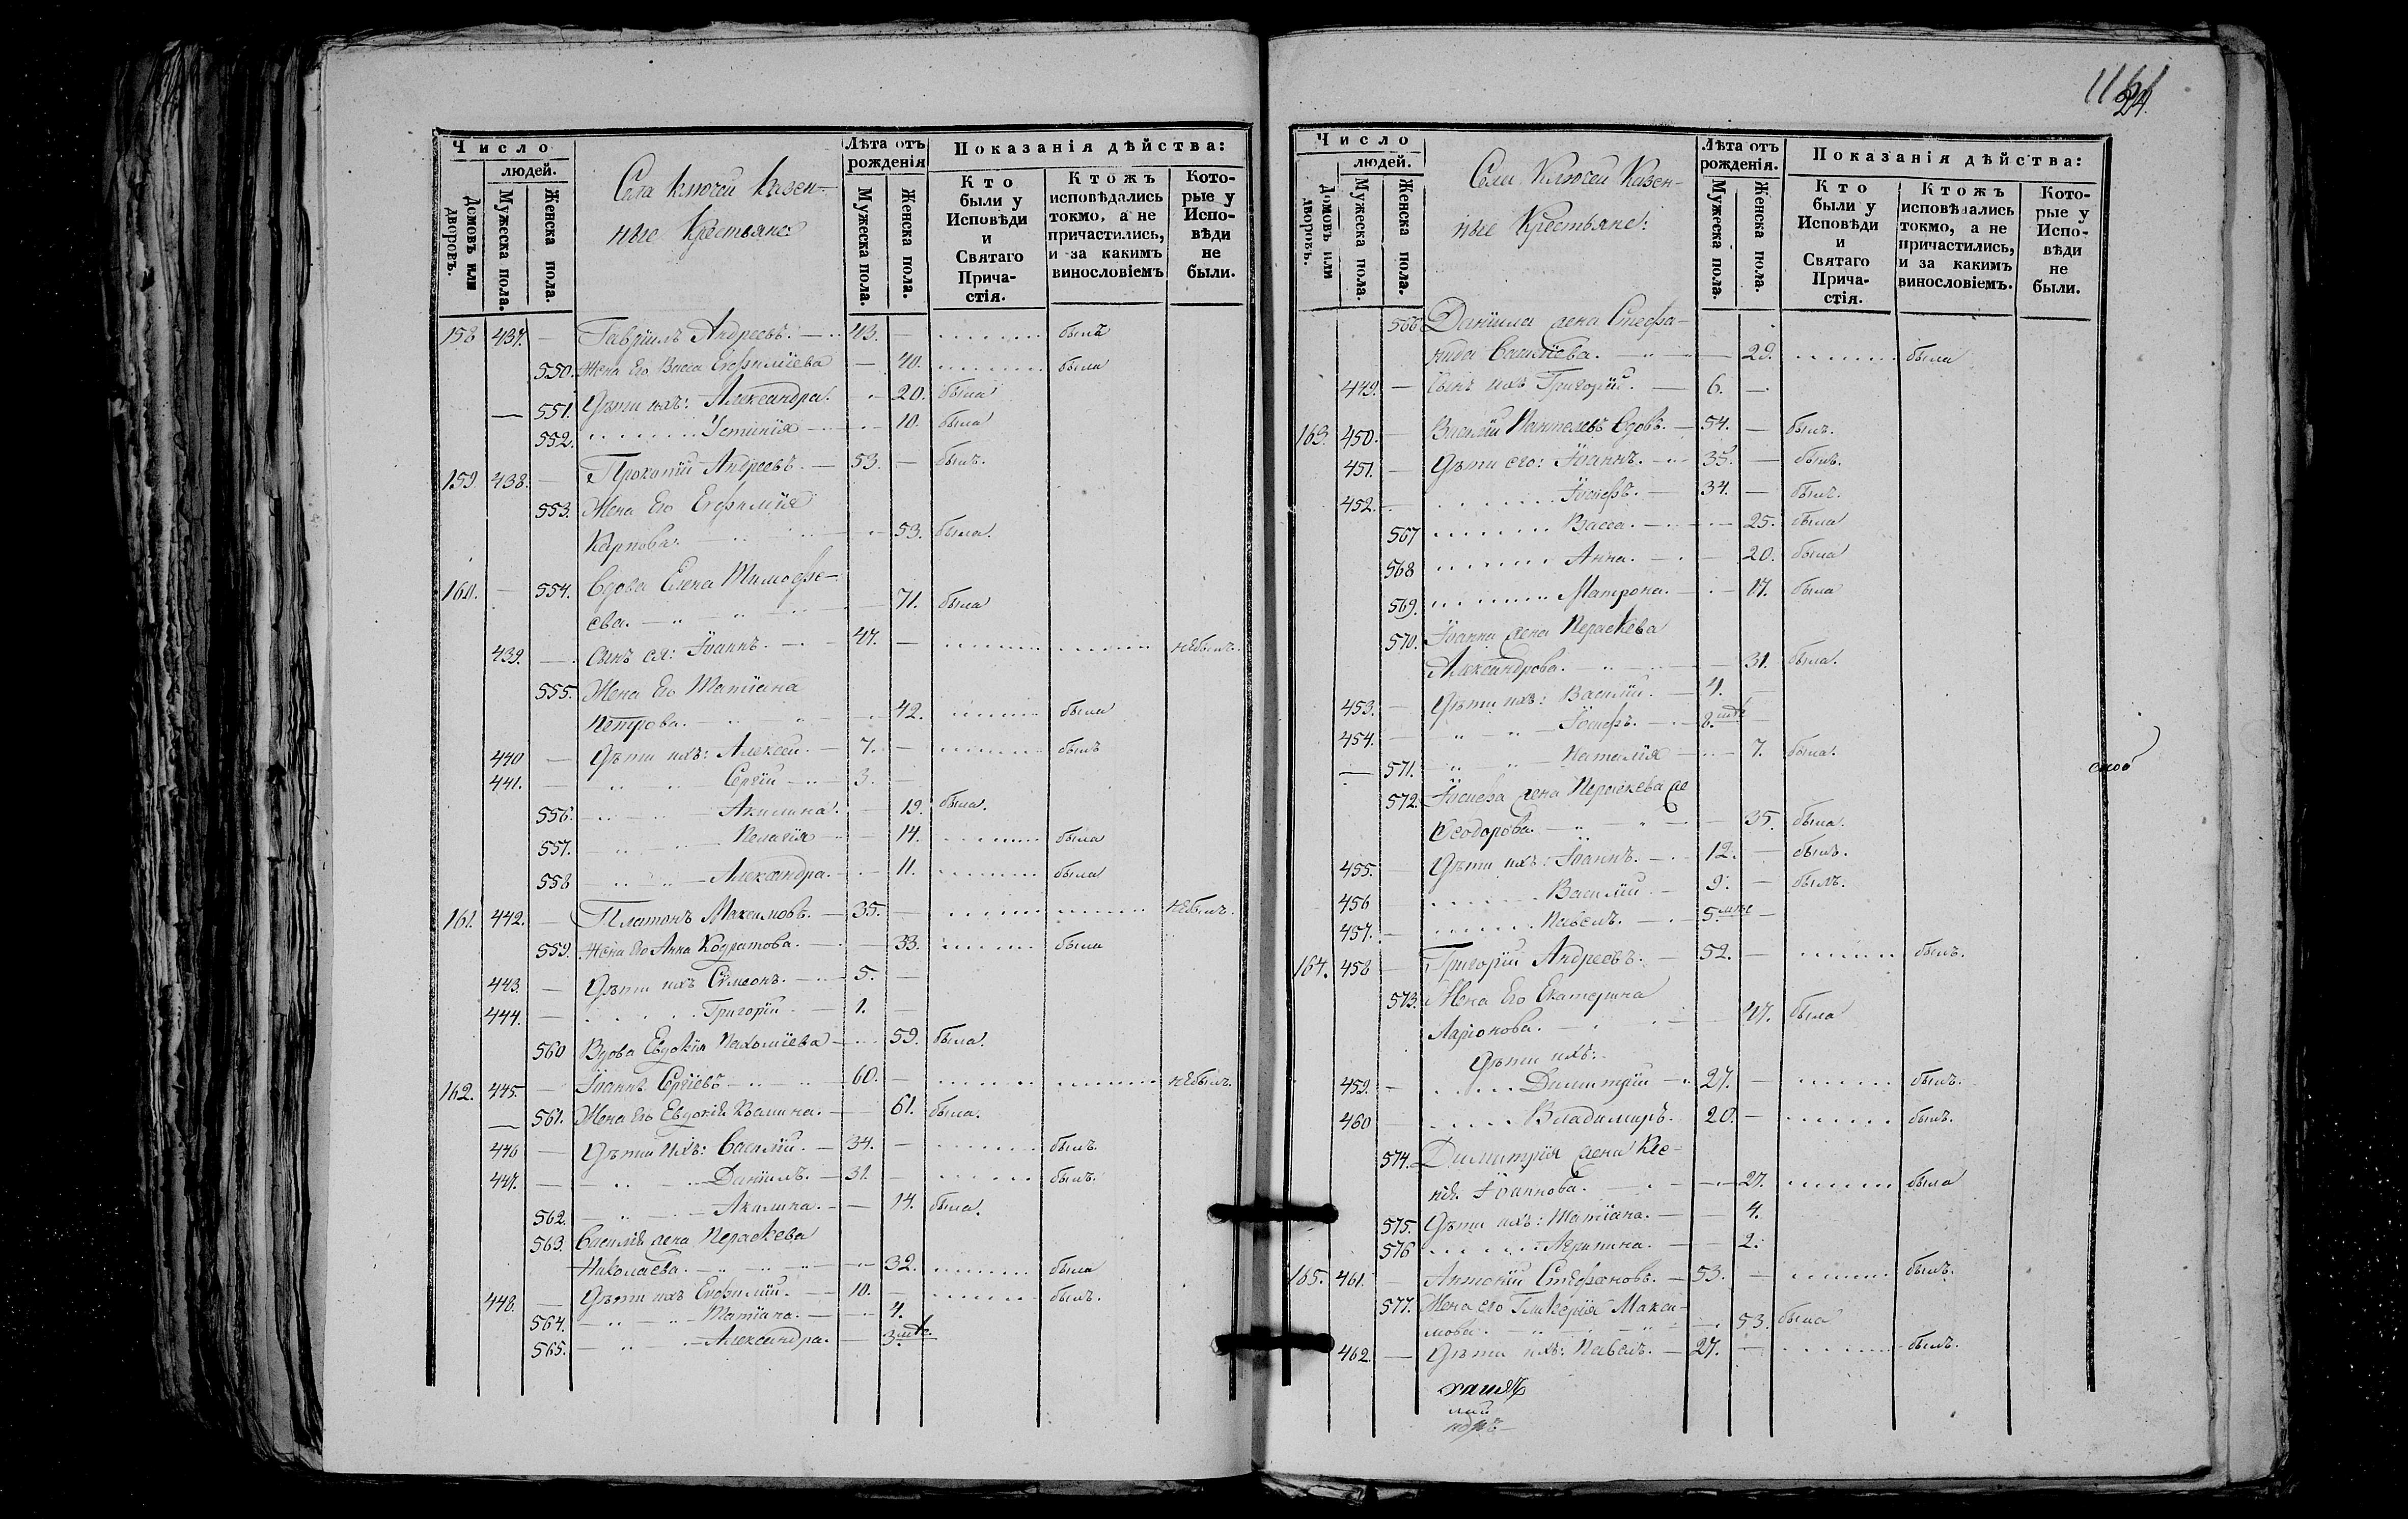 Число
людей.
Домовъ или дворовъ.
Мужеска пола.
Женска пола.
Села Ключей Казен-
ные Крестьяне:
Лѣта отъ рожденія
Мужеска пола.
Женска пола.
Показанія дѣйства:
Кто были у Исповѣди и Святаго Прича-стія.
Ктожъ исповѣдались токмо, а не причастились, и за какимъ винословіемъ
Кото-рые у Испо-вѣди не были.
158 437. — Гавріилъ Андреевъ. — 43. — былъ
550. Жена Его Васса Евфиміева — 40. была
— 551. Дѣти ихъ: Александра. — 20. была
552. Устинія — 10. была
159 438. — Прокопій Андреевъ. — 53. — былъ.
553. Жена Его Евфимія
Карпова. — 53. была.
160. — 554. Вдова Елена Тимофе-
ева. — 71. была
439. — Сынъ ея: Іоаннъ. — 47. — небылъ.
555. Жена Его Татіана
Петрова. — 42. была
440 — Дѣти ихъ: Алексей. — 7. — былъ
441. — Сергій — 3. —
556. — Акилина. — 19. была.
557. — Пелагія — 14. была
558 — Александра. — 11. была
161. 442. — Платонъ Максимовъ. — 35. — небылъ.
559. Жена Его Анна Кодратова. — 33. была
443. — Дѣти ихъ Симеонъ. — 5. —
444. — Григорій — 1. —
560 Вдова Евдокія Пахоміева — 59. была.
162. 445. — Іоаннъ Сергіевъ — 60. — небылъ.
— 561. Жена Его Евдокія — 61. была.
446 — Дѣти ихъ: Василій. — 34. — былъ.
447. — Даніилъ. — 31. — былъ.
562. — Акилина. — 14. была.
563. Василія жена Параскева
Николаева. — 32. была
448. — Дѣти ихъ Евфимій. — 10. — былъ.
564. — Татіана. — 4.
565. — Александра. — 3.
1161
24.
Число
людей.
Домовъ или дворовъ.
Мужеска пола.
Женска пола.
Села Ключей Казен-
ные Крестьяне:
Лѣта отъ рожденія.
Мужеска пола.
Женска пола.
Показанія дѣйства:
Кто были у Исповѣди и Святаго Прича-стія.
Ктожъ исповѣдались токмо, а не причастились, и за какимъ винословіемъ.
Кото-рые у Испо-вѣди не были.
566 Даніила жена Стефа-
нида Василіева. — 29. была
449. — Сынъ ихъ Григорій. — 6. —
163. 450. — Василій Пантелевъ вдовъ. — 54. — былъ.
451. — Дѣти его: Іоаннъ. — 35. — былъ.
452. — Іосифъ. — 34. — былъ.
567 Васса. — 25. была
568 Анна. — 20. была
569. Матрона. — 17. была
570. Іоанна жена Параскева
Александрова. — 31. была.
453. — Дѣти ихъ: Василій. — 4. —
454. — Іосифъ. — 8. —
— 571. Наталія — 7. была.
572. Іосифа жена Параскева
Ѳеодорова. — 35. была.
455. — Дѣти ихъ: Іоаннъ. — 12. — былъ.
456 Василій — 9. — былъ.
457. — Павелъ. — 5. —
164. 458 — Григорій Андреевъ. — 52. — былъ.
573. Жена Его Екатерина
Ларіонова. — 47. была
Дѣти ихъ:
459. — Димитрій — 27. — былъ.
460 — Владимиръ. 20. — былъ.
574. Димитрія жена Ксе-
нія Іоаннова. — 27. была
575. Дѣти ихъ: Татіана. — 4.
576 Агрипина. — 2.
165. 461. — Антоній Стефановъ. — 53. — былъ.
577. Жена его Гликерія Макси-
мова. — 53. была
462. — Дѣти ихъ: Павелъ. — 27. — былъ.